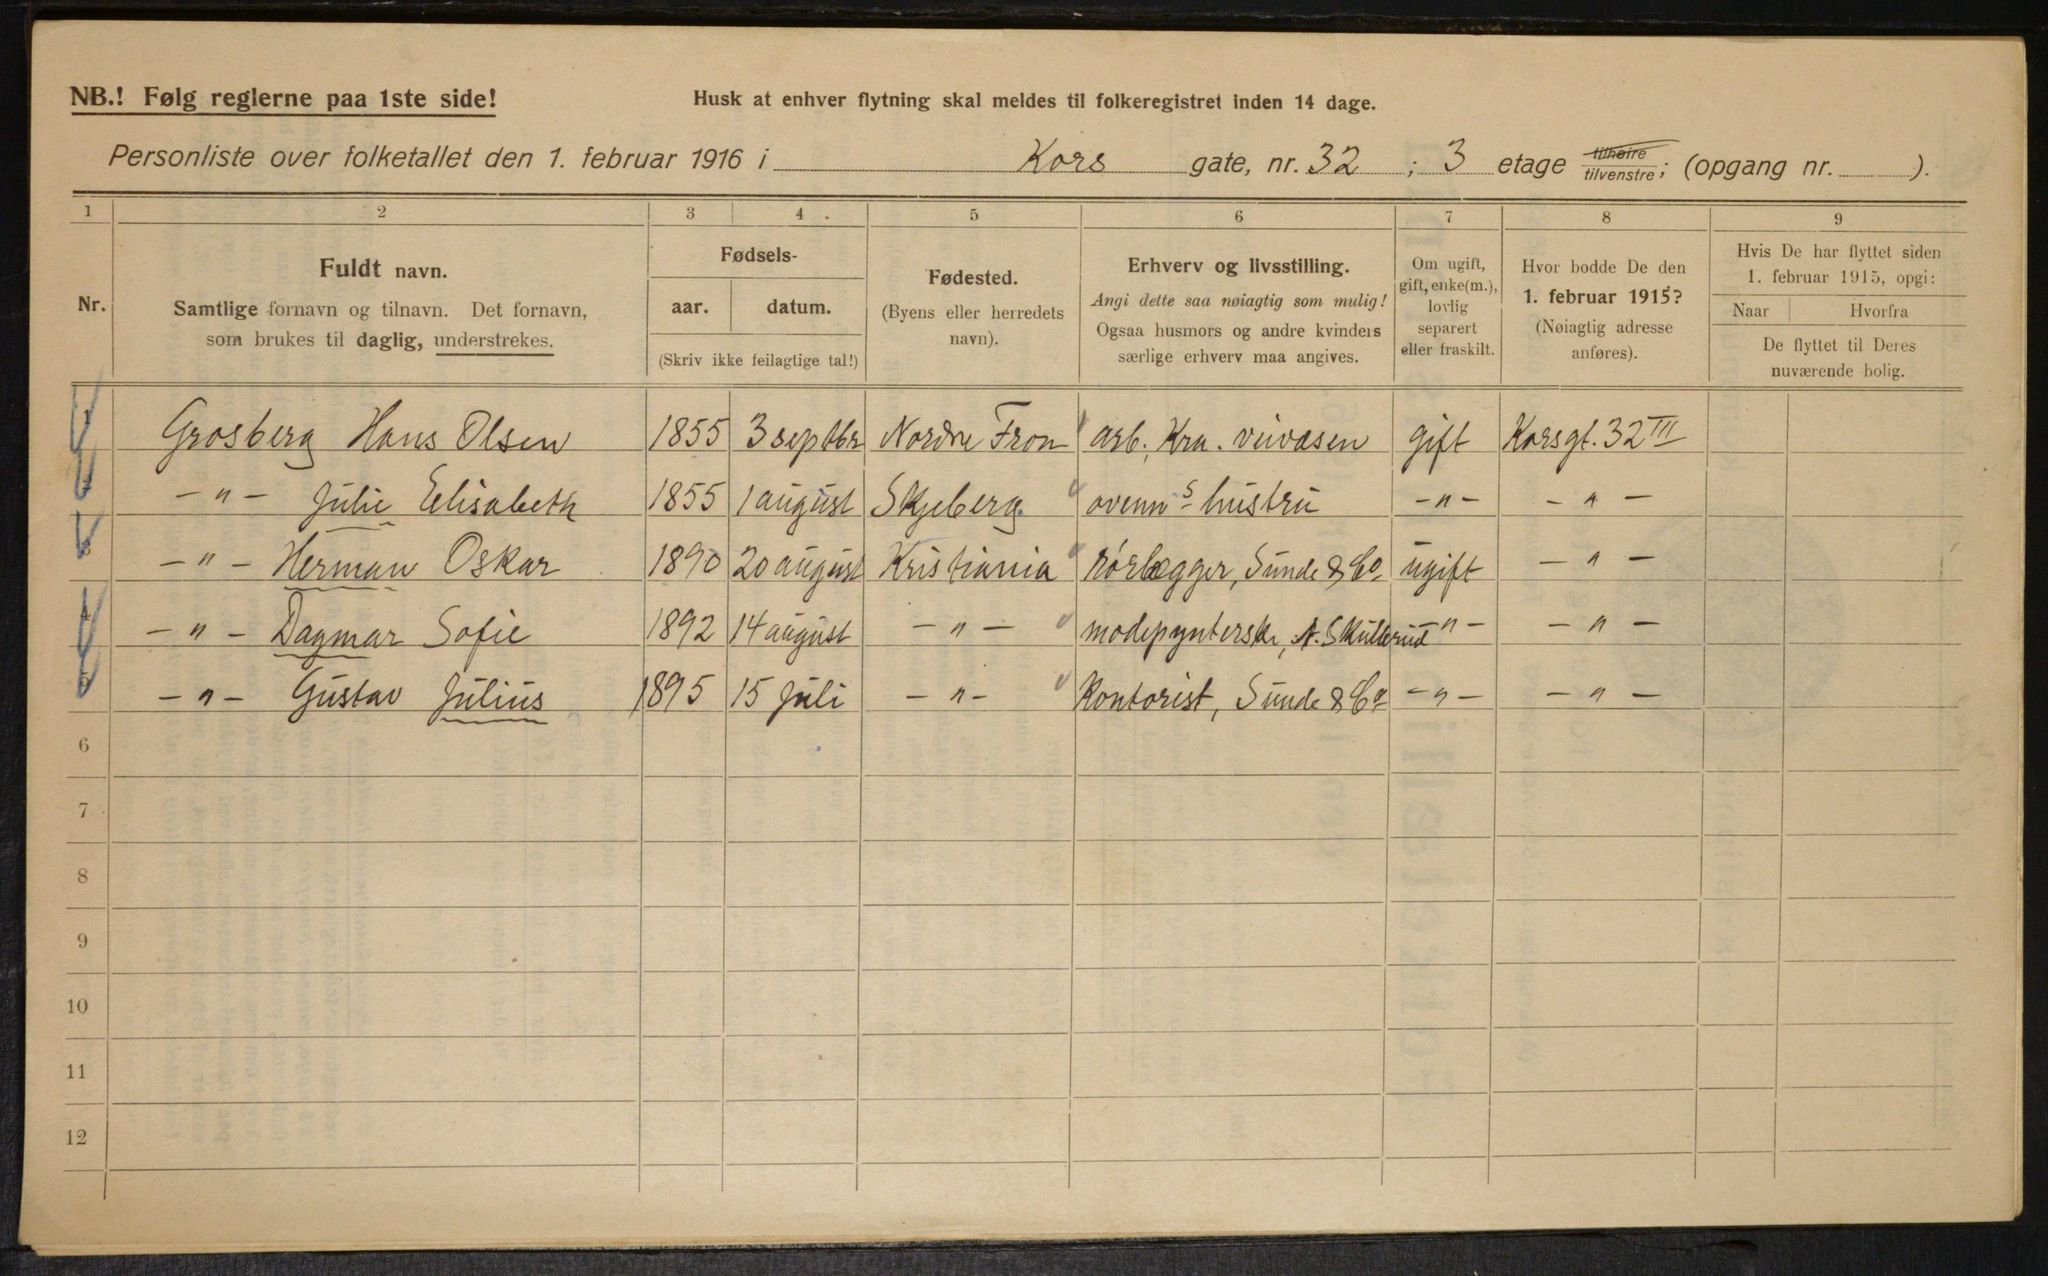 NB.! Følg reglerne paa 1ste side!
Husk at enhver flytning skal meldes til folkeregistret inden 14 dage.
Personliste over folketallet den 1. februar 1916 i Kors gate, nr. 32 ; 3 etage tilhøire tilvenstre; (opgang nr. ).
1 2 3 4 5 6 7 8 9
Nr.
Fuldt navn.
Samtlige fornavn og tilnavn. Det fornavn,
som brukes til daglig, understrekes.
Fødsels-
aar. datum.
(Skriv ikke feilagtige tal!)
Fødested.
(Byens eller herredets
navn).
Erhverv og livsstilling.
Angi dette saa nøiagtig som mulig!
Ogsaa husmors og andre kvinders
særlige erhverv maa angives.
Om ugift,
gift, enke(m.),
lovlig
separert
eller fraskilt.
Hvor bodde De den
1. februar 1915?
(Nøiagtig adresse
anføres).
Hvis De har flyttet siden
1. februar 1915, opgi:
Naar Hvorfra
De flyttet til Deres
nuværende bolig.
1 Grosberg Hans Olsen 1855 3 septbr Nordre Fron arb. Kra. veivæsen gift Korsgt. 32 III
-"- Julie Elisabeth 1855 1 august Skjeberg ovenns hustru -"- -"-
3 -"- Herman Oskar 1890 20 august Kristiania rørlægger, Sunde & Co ugift -"-
-"- Dagmar Sofie 1892 14 august -"- modepynterske, A. Skullerud -"- -"-
5 -"- Gustav Julius 1895 15 juli -"- Kontorist, Sunde & Co -"- -"-
6
7
8
9
10
11
12